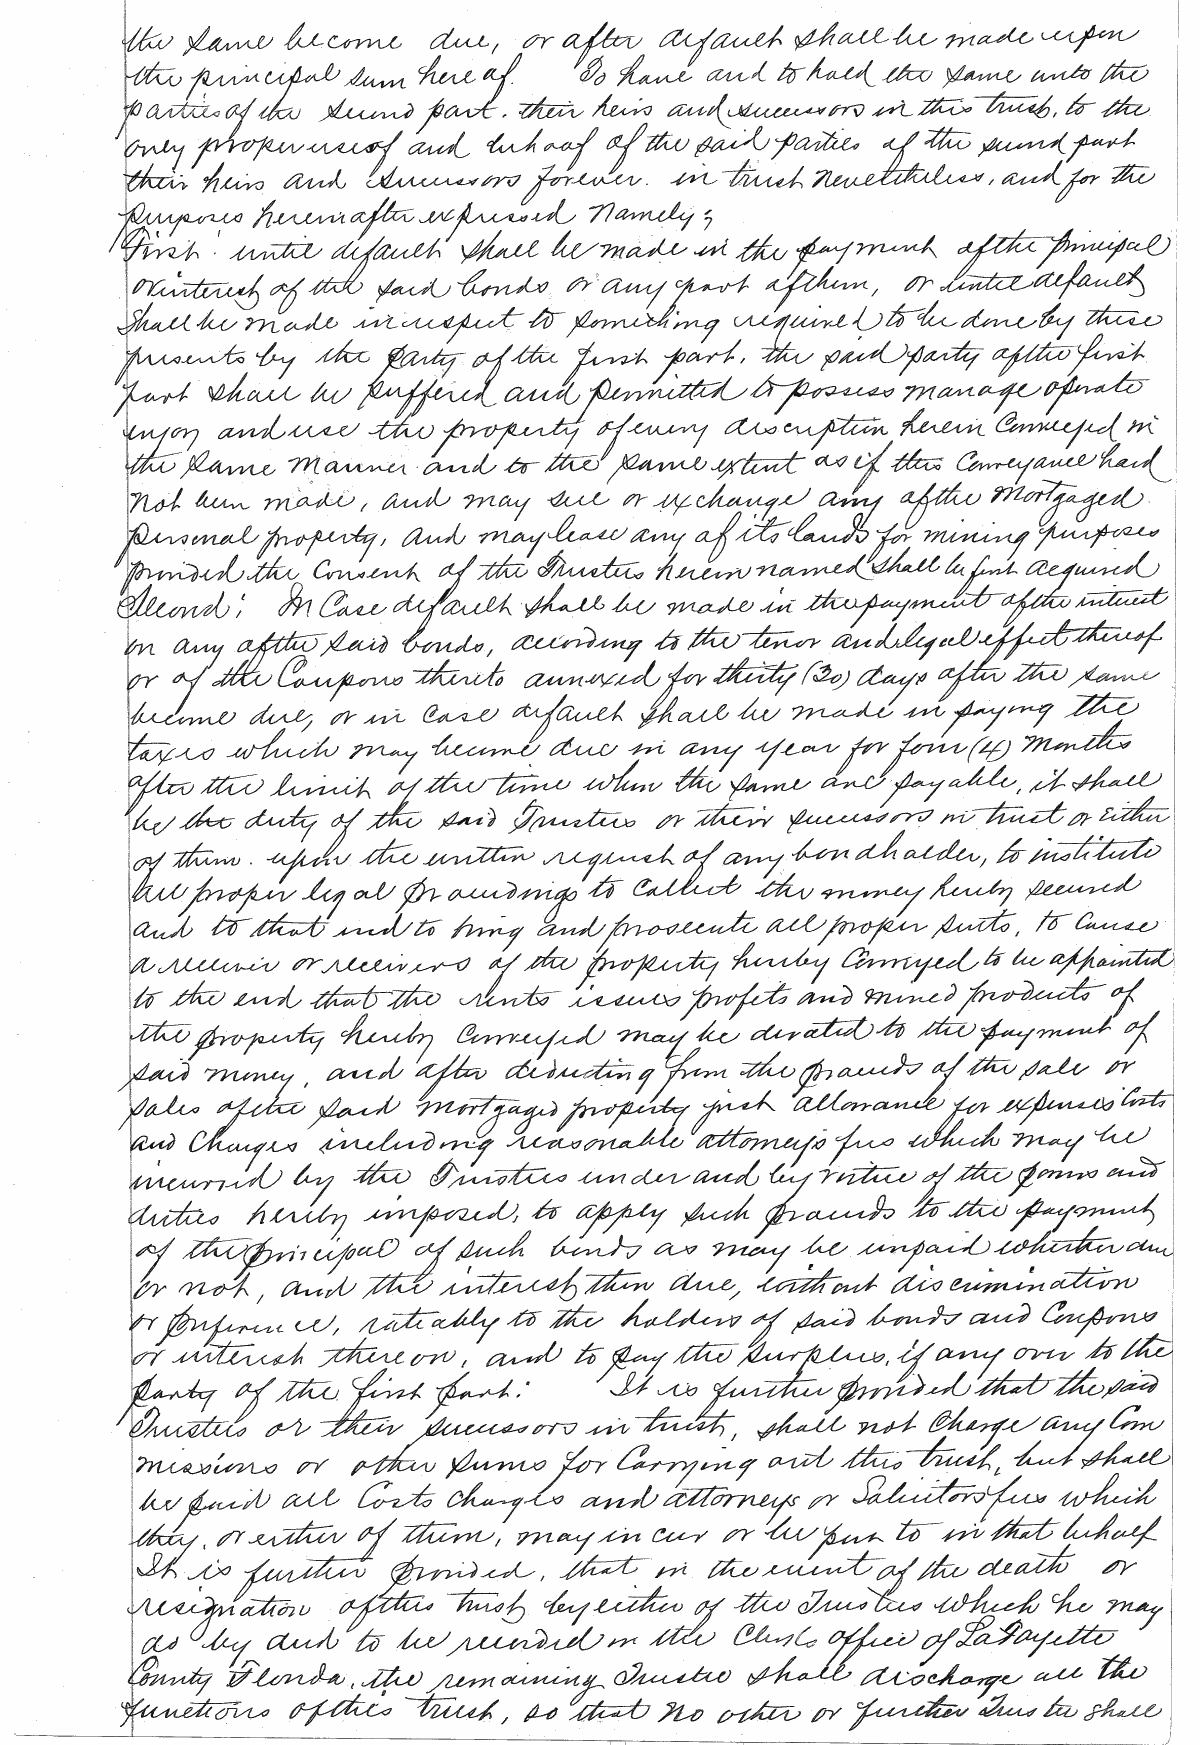 the same become due, or after default shall be made upon
the principal sum hereof. To have and to hold the same unto the
parties of the second part. their heirs and successors in this trust, to the
only proper use of and behoof of the said parties of the second part
their heirs and successors forever. in trust nevetheless, and for the
purposes hereinafter expressed Namely;
First. until default shall be made in the payment of the principal
or interest of the said bonds or any part of them, or until default
shall be made in respect to something required to be done by these
presents by the party of the first part, the said party of the first
part shall be suffered and permitted to possess manage operate
enjoy and use the property of every discription herein Conveyed in
the same manner and to the same extent as if this Conveyance had
not been made, and may sell or exchange any of the Mortgaged
personal property, and may lease any of its lands for mining purposes
provided the Consent of the Trustees herein named shall be first acquired
Second: In Case default shall be made in the payment of the interest
on any of the said bonds, according to the tenor and legal effect thereof
or of the Coupons thereto annexed for thirty (30) days after the same
become due, or in case default shall be made in paying the
taxes which may become due in any year for four (4) Months
after the limit of the time when the same are payable, it shall
be the duty of the said Trustees or their successors in trust or Either
of them. upon the written request of any bondholder, to institute
all proper legal proceedings to Collect the money hereby secured
and to that end to bring and prosecute all proper suits, to cause
a receiver or receivers of the property hereby Conveyed to be appointed
to the end that the rents issues profits and mined products of
the property hereby Conveyed may be devoted to the payment of
said money, and after deducting from the proceeds of the sale or
sales of the said mortgaged property just allowance for expenses Costs
and Charges including reasonable attorneys fees which may be
incurred by the Trustees under and by virtue of the powers and
duties hereby imposed, to apply such proceeds to the payment
of the principal of such bonds as may be unpaid whether due
or not, and the interest then due, without discrimination
or preference, rateably to the holders of said bonds and Coupons
or interest thereon, and to pay the surplus, if any over to the
party of the first part: It is further provided that the said
Trustees or their successors in trust, shall not Charge any Com
missions or other sums for Carrying out this trust, but shall
be paid all Costs charges and attorneys or Solicitors fees which
they, or either of them, may incur or be put to in that behalf
It is further provided, that in the event of the death or
resignation of this trust by either of the Trustees which he may
do by deed to be recorded in the Clerks office of LaFayette
County Florida, the remaining Trustee shall discharge all the
functions of this trust, so that no other or further Trustee shall